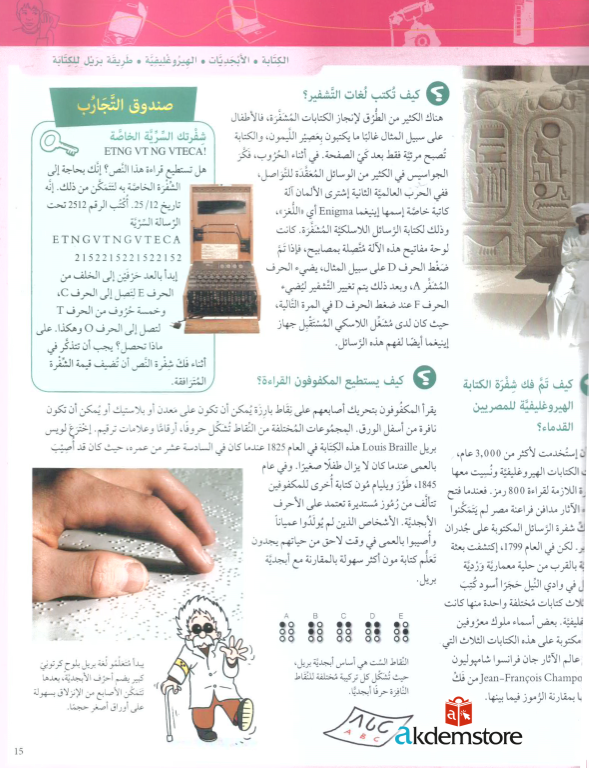 الكِتابَة • الأبْجَديَّات • الهِيروغْليفيَّة • طَريقة بْرَيْل لِلكِتَابَة
كيف تُكتب لُغات التَّشفير؟
هناك الكثير من الطُّرُق لإنجاز الكتابات المُشفَّرَة، فالأطفال
على سبيل المثال غالبًا ما يكتبون بِعَصِيْر اللَّيمون، والكتابة
تُصبح مرئيَّة فقط بعد كيّ الصفحة. في أثناء الحُرُوب، فَكَّرَ
الجواسيس في الكثير من الوسائل المُعَقَّدة للتَّواصل،
ففي الحرب العالميَّة الثانية إشترى الألمان آلة
كاتبة خاصَّة إسمها إينيغما Enigma أي «اللُّغز»،
وذلك لكتابة الرَّسائل اللاسلكيَّة المُشفَّرة. كانت
لوحة مفاتيح هذه الآلة مُتَّصِلة بمصابيح، فإذا تَمَّ
ضَغْط الحرف D على سبيل المثال، يضيء الحرف
المُشفَّر A، وبعد ذلك يتم تغيير التَّشفير ليُضيء
الحرف F عند ضغط الحرف D في المرة التَّالية،
حيث كان لدى مشغِّل اللاسكي المُستَقْبِل جهاز
إينيغما أيضًا لفهم هذه الرَّسائل.
صندوق التَّجارُب
شِفْرتك السِّرِّيَّة الخاصَّة
ETNG VT NG VTECA!
هل تستطيع قراءة هذا النَّص؟ إنَّك بحاجة إلى
الشِّفْرة الخاصَّة به لتَتَمكَّن من ذلك. إنَّه
تاريخ 25/12. أُكْتُب الرقم 2512 تحت
الرِّسالة السِّرّيَّة
E T N G V T N G V T E C A
2 1 5 2 2 1 5 2 2 1 5 2 2 1 5 2
إبدأ بالعد حَرْفَيْن إلى الخلف من
الحرف E لِتَصِل إلى الحرف C،
وخمسة حُرُوف من الحرف T
لتصل إلى الحرف O وهكذا. على
ماذا تحصل؟ يجب أن تتذكَّر في
أثناء فَكّ شِفْرة النَّص أن تُضيف قيمة الشِّفْرة
المُتَرَافقة.
كيف يستطيع المكفوفون القراءة؟
يقرأ المكفُوفون بتحريك أصابعهم على نِقَاط بارِزَة يُمكن أن تكون على معدن أو بلاستيك أو يُمكن أن تكون
نافرة من أسفل الورق. المِجموعات المُختلفة من النِّقاط تُشكِّل حروفًا، أرقامًا وعلامات ترقيم. إخْتَرَع لويس
بريل Louis Braille هذه الكتابة في العام 1825 عندما كان في السادسة عشر من عمره، حيث كان قد أُصِيْبَ
بالعمى عندما كان لا يزال طفلًا صغيرًا. وفي عام
1845، طَوَّرَ ويليام مُون كتابة أُخرى للمكفوفين
تتألَّف من رُمُوز مُستديرة تعتمد على الأحرف
الأبجديَّة. الأشخاص الذين لم يُولَدُوا عمياناً
وأُصيبوا بالعمى في وقت لاحق من حياتهم يجدون
تَعلُّم كتابة مون أكثر سهولة بالمقارنة مع أبجديَّة
بريل.
A B C D E
النِّقاط السِّت هي أساس أبجديَّة بريل،
حيث تُشكِّل كل تركيبة مُختلفة للنِّقاط
النَّافِرَة حرفًا أبجديًّا.
يبدأ مُتَعلِّمُو لُغة بريل بلوحٍ كرتونيّ
كبير يضم أحرُف الأبجديَّة، بعدها
تتمكَّن الأصابع من الإنزلاق بسهولة
على أوراق أصغر حجمًا.
كيف تَمَّ فك شِفْرَة الكتابة
الهيروغليفيَّة للمصريين
القدماء؟
إستُخدمت لأكثر من 3,000 عام،
الكتابات الهيروغليفيَّة ونُسِيت معها
اللازمة لقراءة 800 رمز. فعندما فتح
الآثار مدافن فراعنة مصر لم يتَمكَّنوا
شفرة الرَّسائل المكتوبة على جُدران
لكن في العام 1799، إكتشفت بعثة
بالقرب من حلية معماريَّة وَرْديَّة
في وادي النِّيل حَجَرًا أسود كُتِبَ
كتابات مُختلفة واحدة منها كانت
بعض أسماء ملوك معرُوفين
مكتوبة على هذه الكتابات الثلاث التي
عالم الآثار جان فرانسوا شامبوليون
Jean-François Champo من فَكّ
بمقارنة الرُّموز فيما بينها.
A B C
akdemstore
15